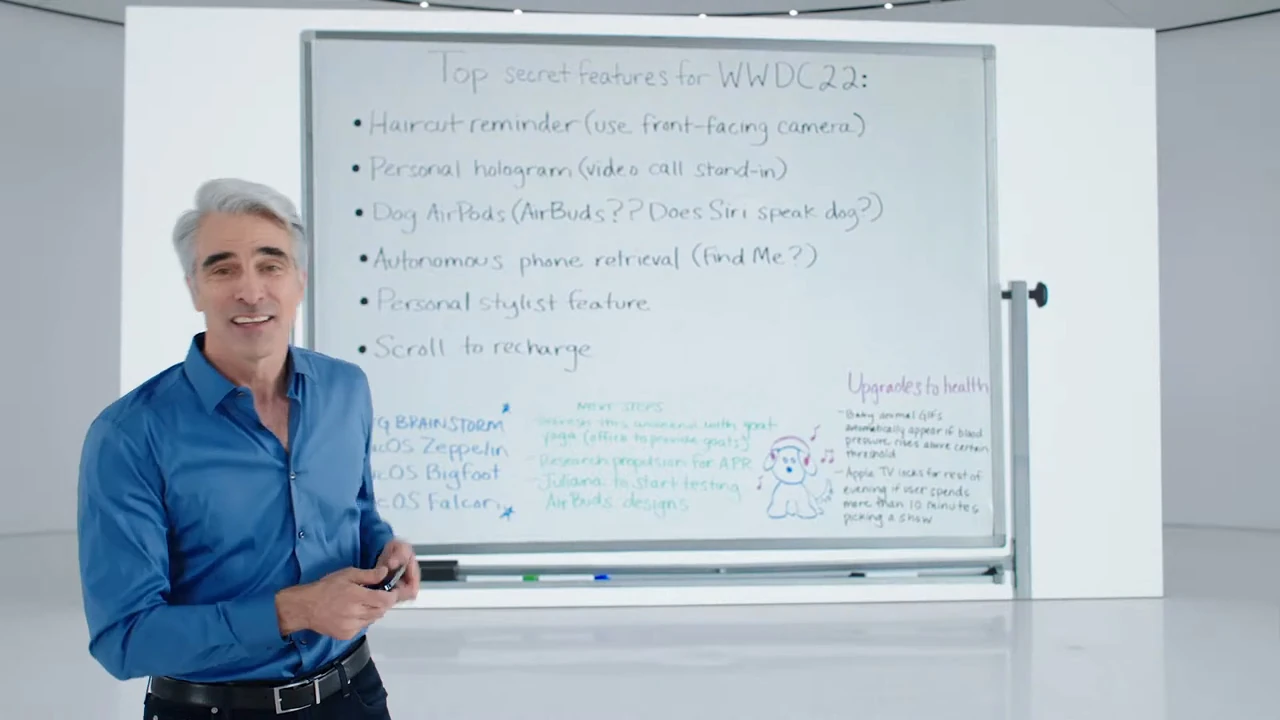 Top secret features for WWDC22:
• Haircut reminder (use front-facing camera)
• Personal hologram (video call stand-in)
• Dog AirPods (AirBuds?? Does Siri speak dog?)
• Autonomous phone retrieval (Find Me?)
• Personal stylist feature
• Scroll to recharge
G BRAINSTORM
cOS Zeppelin
cOS Bigfoot
cOS Falcon
NEXT STEPS
this weekend with goat
yoga (office to provide goats)
- Research propulsion for APR
- Juliana to start testing
AirBuds designs
Upgrades to health
- Baby animal GIFs
automatically appear if blood
pressure rises above certain
threshold
- Apple TV locks for rest of
evening if user spends
more than 10 minutes
picking a show